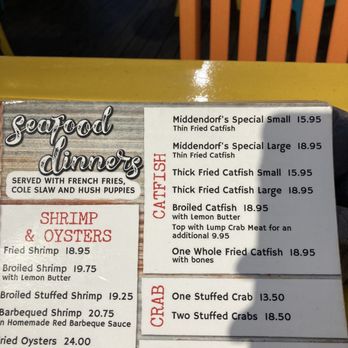 Seafood
dinners
SERVED WITH FRENCH FRIES,
COLE SLAW AND HUSH PUPPIES
SHRIMP
& OYSTERS
Fried Shrimp 18.95
Broiled Shrimp 19.75
with Lemon Butter
Broiled Stuffed Shrimp 19.25
Barbequed Shrimp 20.75
in Homemade Red Barbeque Sauce
Fried Oysters 24.00
CATFISH
Middendorf's Special Small 15.95
Thin Fried Catfish
Middendorf's Special Large 18.95
Thin Fried Catfish
Thick Fried Catfish Small 15.95
Thick Fried Catfish Large 18.95
Broiled Catfish 18.95
with Lemon Butter
Top with Lump Crab Meat for an
additional 9.95
One Whole Fried Catfish 18.95
with bones
CRAB
One Stuffed Crab 13.50
Two Stuffed Crabs 18.50